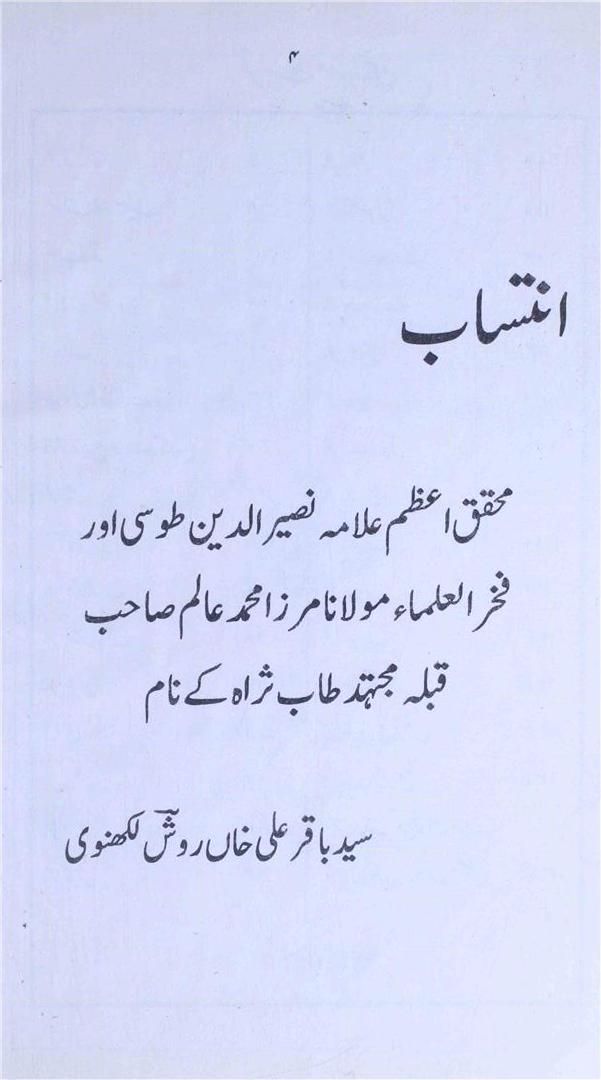 ۴
انتساب
محقق اعظم علامہ نصیر الدین طوسی اور
فخر العلماء مولانا مرزا محمد عالم صاحب
قبلہ مجتہد طاب ثراہ کے نام
سید باقر علی خاں روشؔ لکھنوی